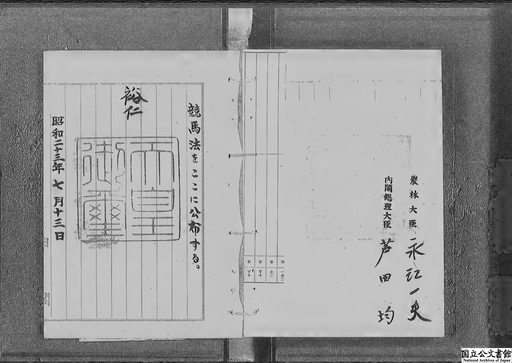 競馬法をここに公布する。
裕仁
天皇御璽
昭和二十三年七月十三日
農林大臣 永江一夫
内閣総理大臣 芦田均
国立公文書館
National Archives of Japan